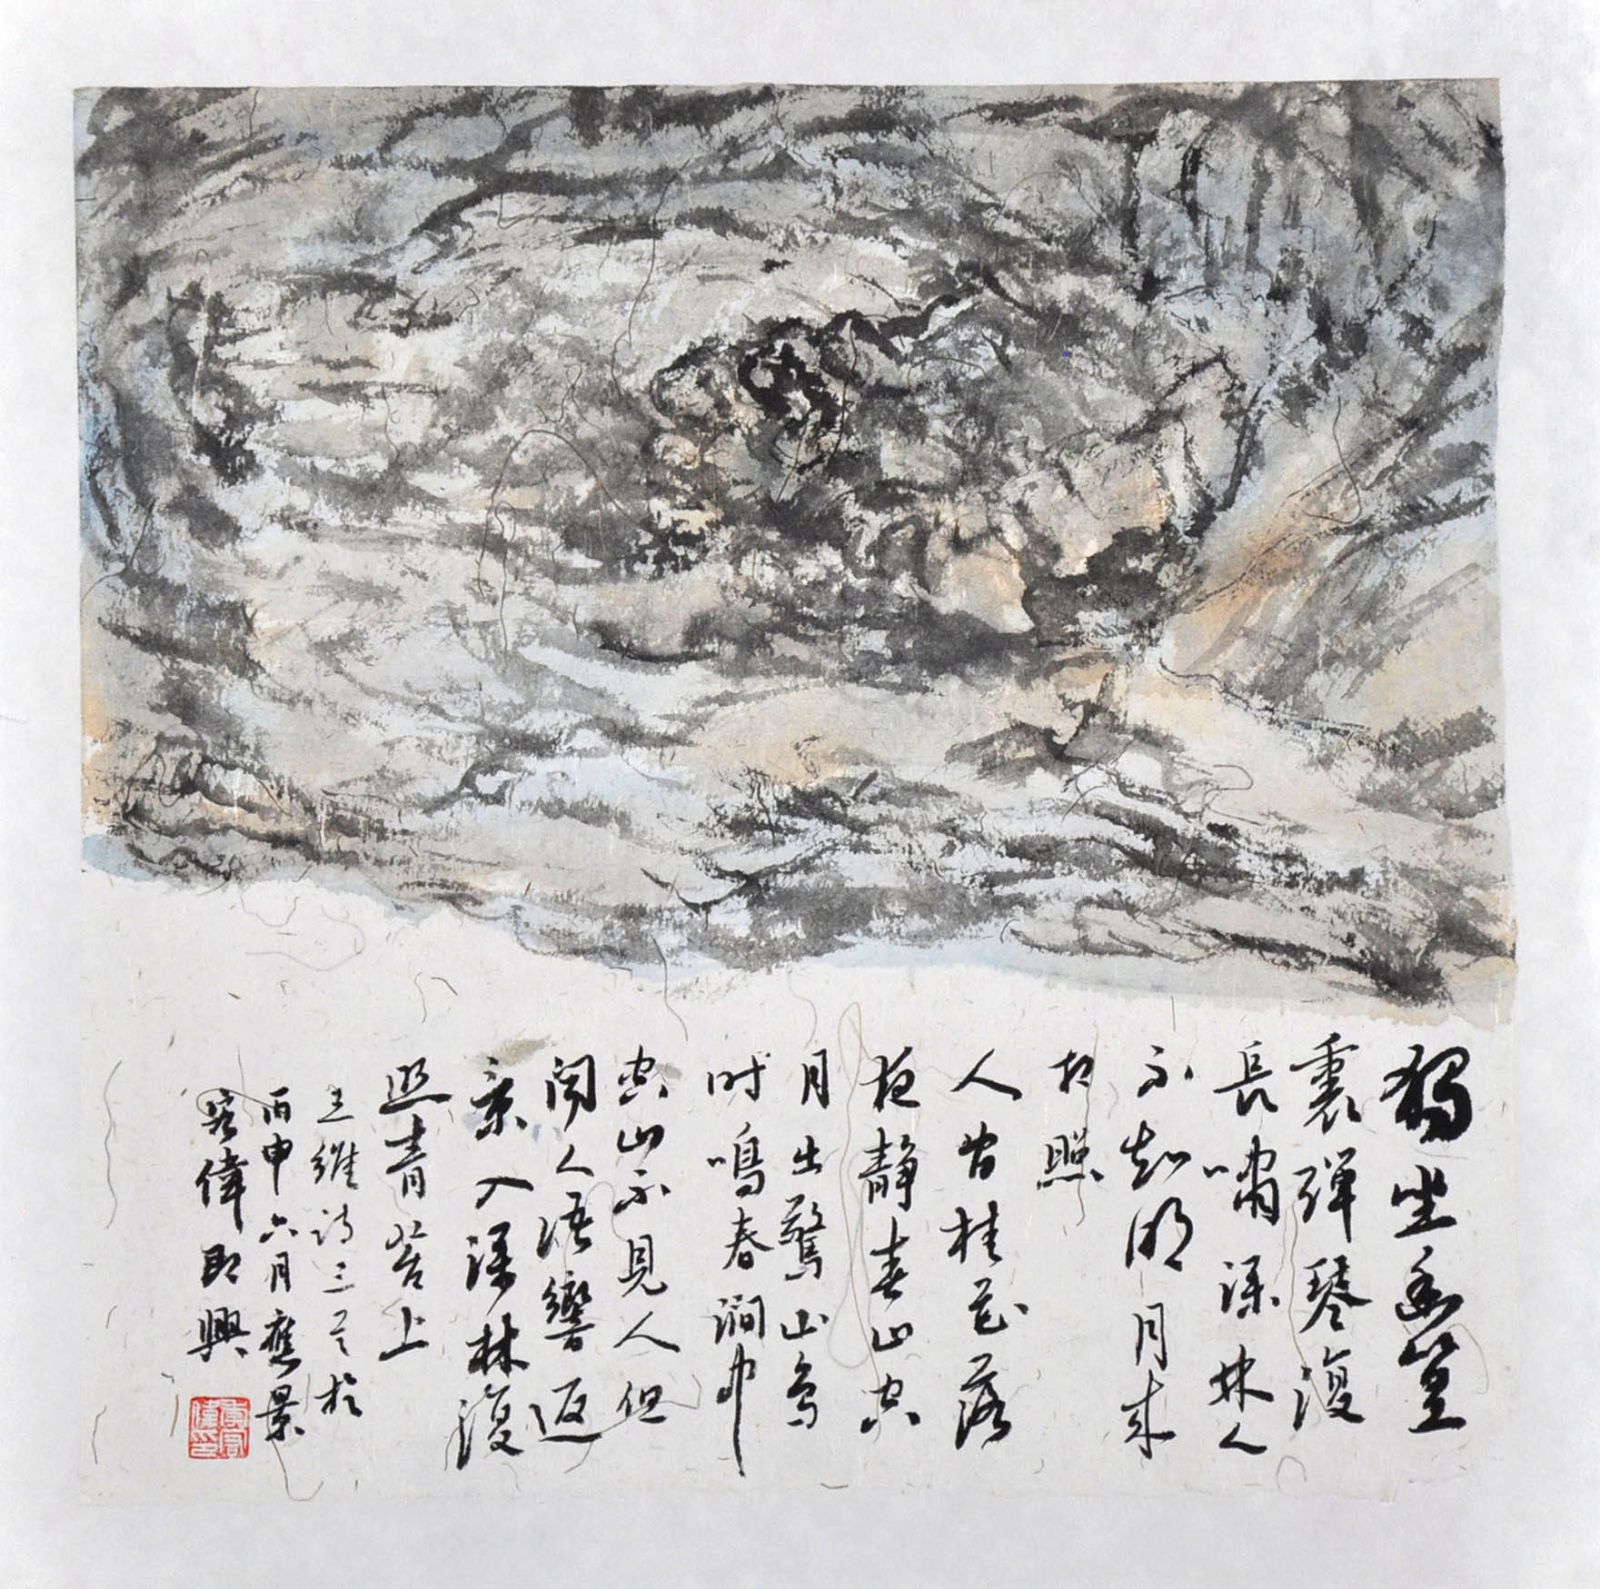 獨坐幽篁
裏彈琴復
長嘯深林人
不知明月来
相照
人閒桂花落
夜静春山空
月出驚山鳥
時鳴春澗中
空山不見人但
聞人語響返
景入深林復
照青苔上
王維詩三首於
丙申六月應景
偉即興